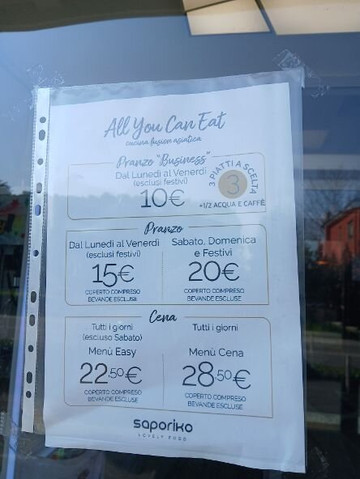 All You Can Eat
cucina fusion asiatica
Pranzo "Business"
Dal Lunedì al Venerdì
(esclusi festivi)
10€
3 PIATTI A SCELTA
3
+1/2 ACQUA E CAFFÈ
Pranzo
Dal Lunedì al Venerdì
(esclusi festivi)
15€
COPERTO COMPRESO
BEVANDE ESCLUSE
Sabato, Domenica
e Festivi
20€
COPERTO COMPRESO
BEVANDE ESCLUSE
Cena
Tutti i giorni
(escluso Sabato)
Menù Easy
22,50€
COPERTO COMPRESO
BEVANDE ESCLUSE
Tutti i giorni
Menù Cena
28,50€
COPERTO COMPRESO
BEVANDE ESCLUSE
saporiko
LOVELY FOOD